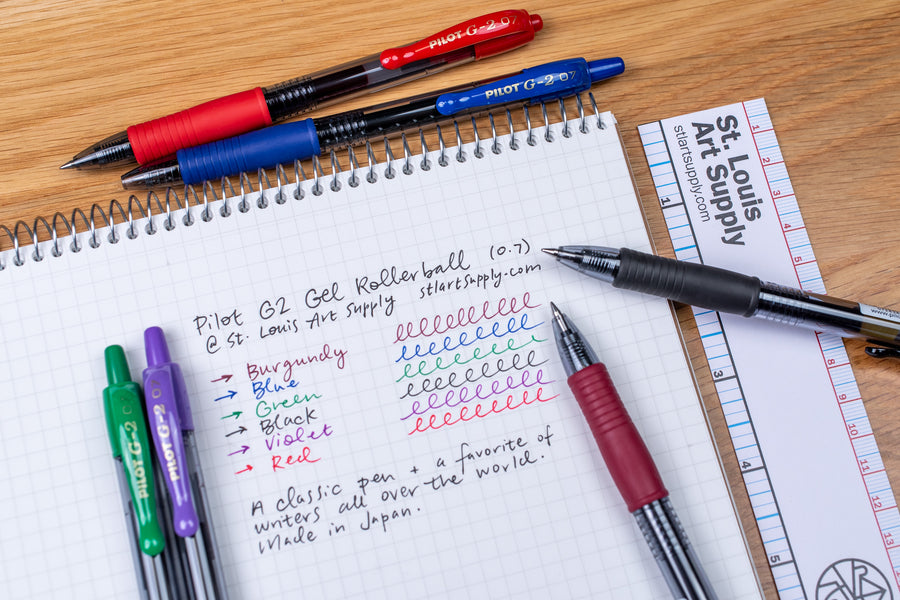 PILOT G-2 07
PILOT G-2 07
St. Louis
Art Supply
stlartsupply.com
Pilot G2 Gel Rollerball (0.7)
@ St. Louis Art Supply stlartsupply.com
→ Burgundy
→ Blue
→ Green
→ Black
→ Violet
→ Red
A classic pen + a favorite of
writers all over the world.
Made in Japan.
PILOT G-2 07
PILOT G-2 07
1
2
3
4
5
1
2
3
4
5
8
9
10
11
12
13